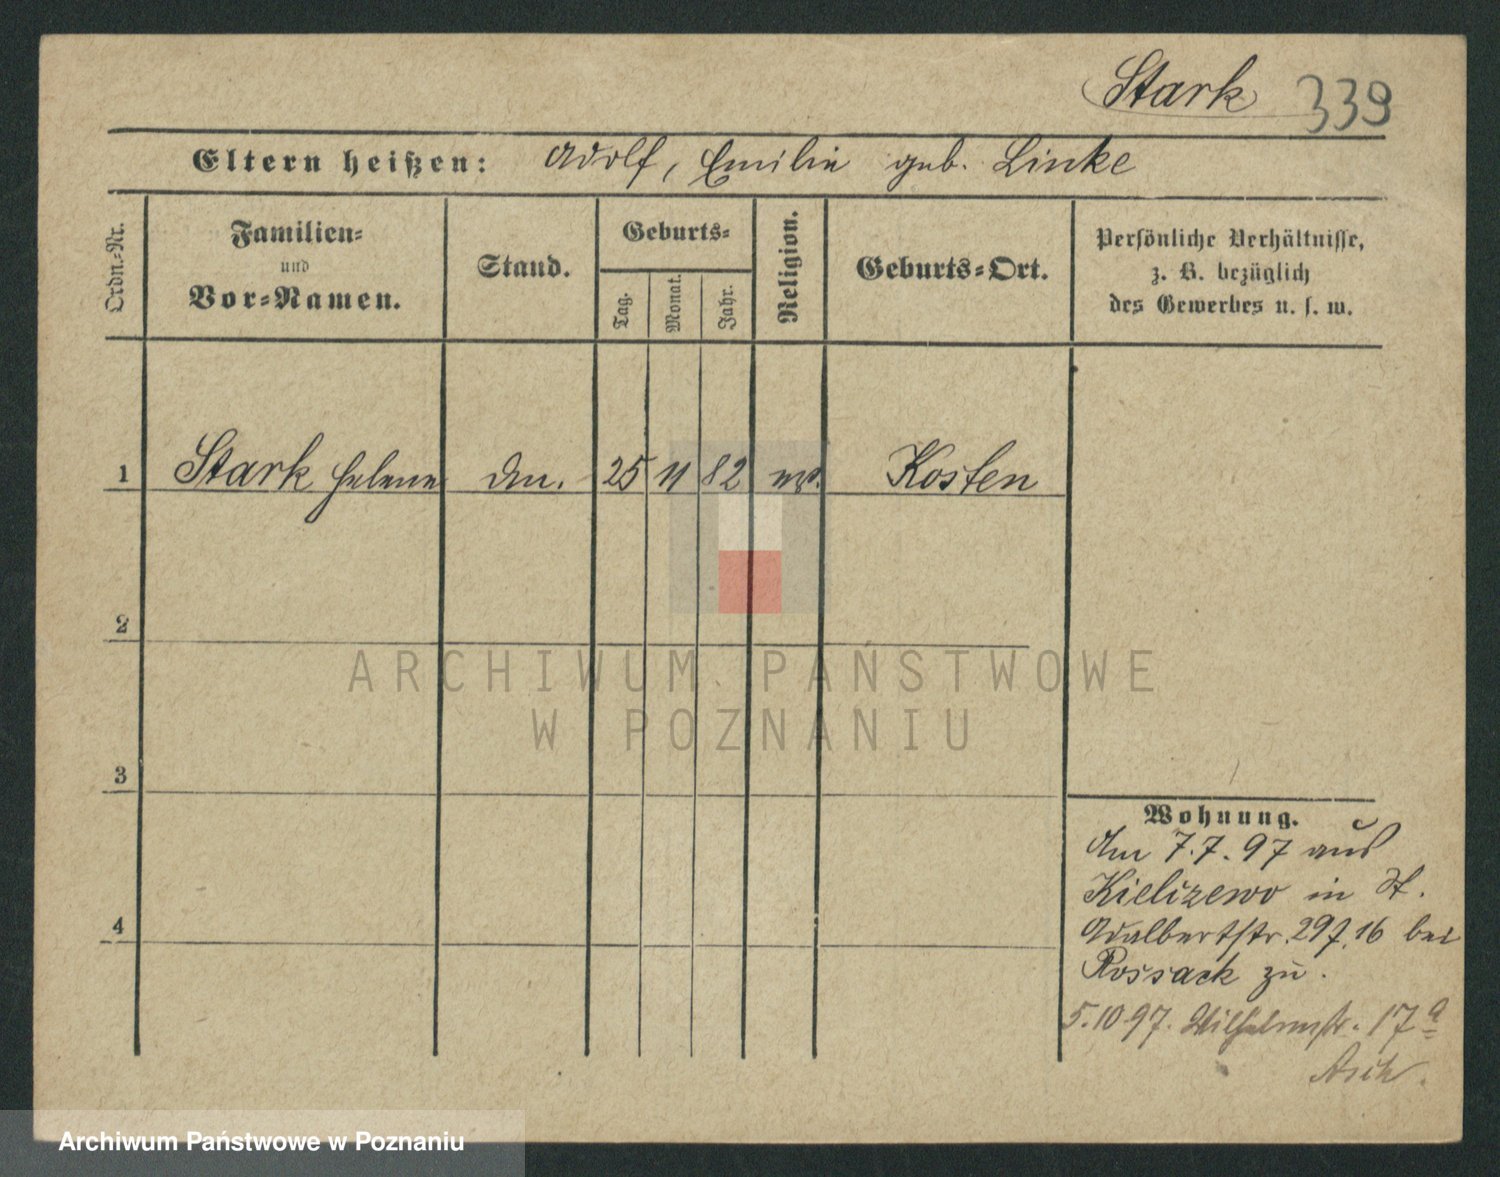 Stark 339
Eltern heißen: Adolf, Emilie geb. Linke
Ordn.-Nr.
Familien-
und
Vor-Namen.
Stand.
Geburts-
Tag.
Monat.
Jahr.
Religion.
Geburts-Ort.
Persönliche Verhältnisse,
z. B. bezüglich
des Gewerbes u. s. w.
1 Stark Helene 25 11 82 Kosten
2
ARCHIWUM PAŃSTWOWE
W POZNANIU
3
4
Wohnung.
Am 7.7.97 aus
Kielizewo in St.
Adalbertstr. 29 16 bei
Rossack zu.
5.10.97. Wilhelmstr. 17a
Archiwum Państwowe w Poznaniu